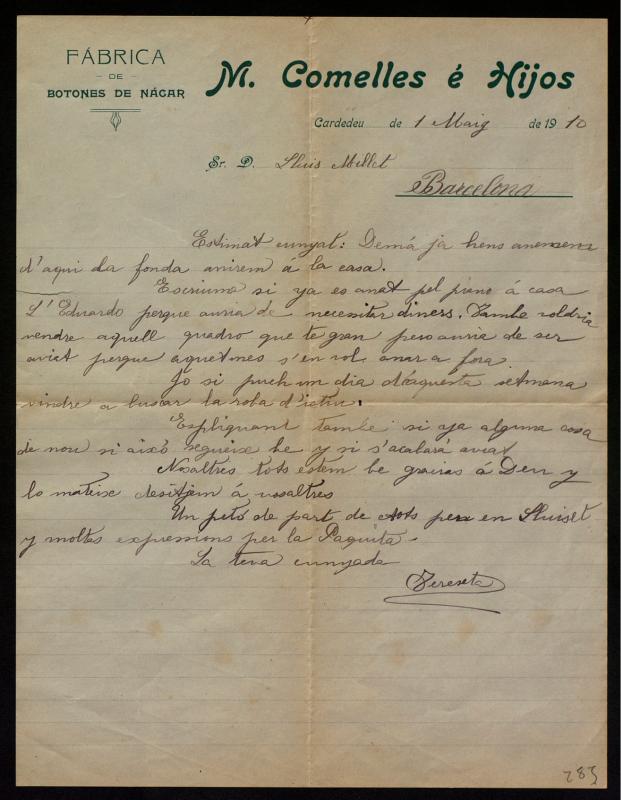 FÁBRICA
DE
BOTONES DE NÁCAR
M. Comelles é Hijos
Cardedeu de 1 Maig de 1910
Sr. D. Lluis Millet
Barcelona
Estimat cunyat: Demá ja hens anem
d'aqui da fonda anirem á la casa.
Escriume si ya es anat pel piano á casa
L'Eduardo perque auria de necesitar diners. Tambe voldria
vendre aquell quadro que te gran pero auria de ser
aviat perque aquet mes s'en vol anar a fora
Jo si puch un dia d'aquesta setmana
vindre a buscar la roba d'istiu.
Expliquant tambe si ya alguna cosa
de nou si aixó segueix be y si s'acabará aviat
Nosaltres tots estem be gracias á Deu y
lo mateix desitjem á vosaltres
Un petó de part de tots pera en Lluiset
y moltes expressions per la Paquita.
La teva cunyada
Tereseta
283